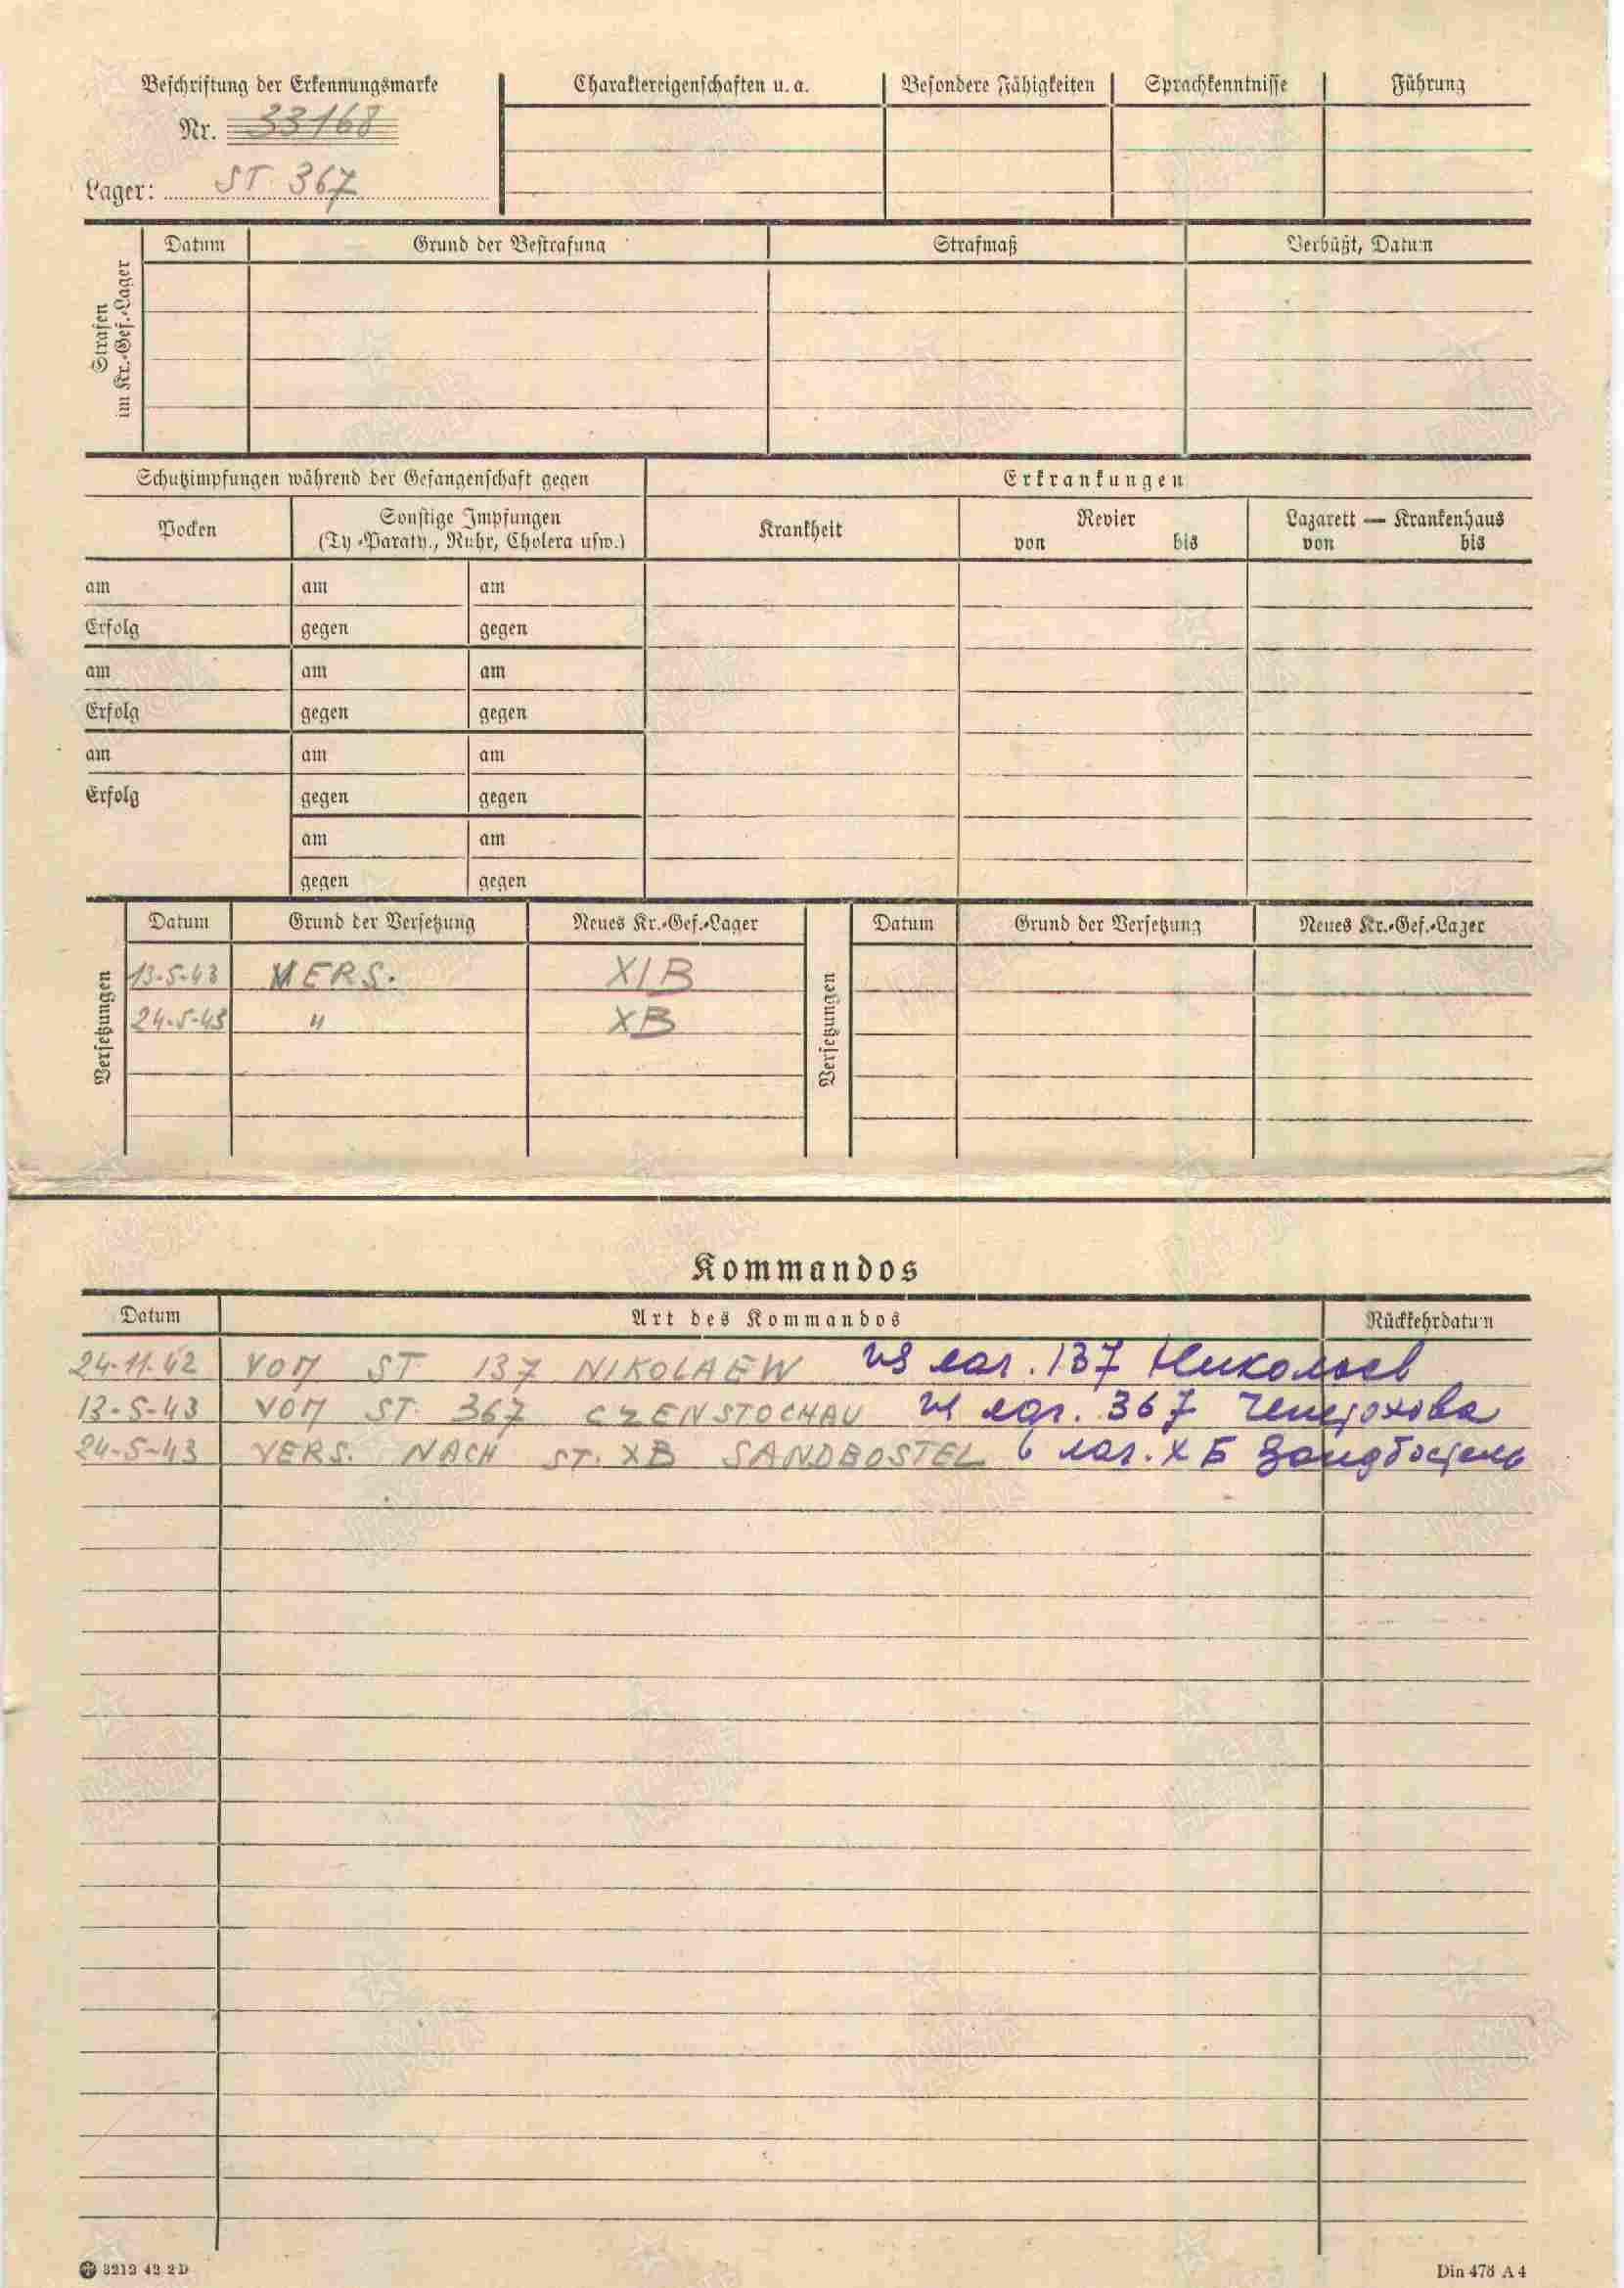 Beschriftung der Erkennungsmarke
Nr. 33168
Lager: ST. 367
Charaktereigenschaften u. a. Besondere Fähigkeiten Sprachkenntnisse Führung
Strafen
im Kr.-Gef.-Lager
Datum Grund der Bestrafung Strafmaß Verbüßt, Datum
Schutzimpfungen während der Gefangenschaft gegen Erkrankungen
Pocken Sonstige Impfungen Krankheit Revier Lazarett — Krankenhaus
(Ty.-Paraty., Ruhr, Cholera usw.) von bis von bis
am am am
Erfolg gegen gegen
am am am
Erfolg gegen gegen
am am am
Erfolg gegen gegen
am am
gegen gegen
Versetzungen
Datum Grund der Versetzung Neues Kr.-Gef.-Lager
13-5-43 VERS. XIB
24-5-43 " XB
Versetzungen
Datum Grund der Versetzung Neues Kr.-Gef.-Lager
Kommandos
Datum Art des Kommandos Rückkehrdatum
24-11-42 VOM ST. 137 NIKOLAEW из лаг. 137 Николаев
13-5-43 VOM ST. 367 CZENSTOCHAU из лаг. 367 Ченстохова
24-5-43 VERS. NACH ST. XB SANDBOSTEL в лаг. X Б Зандбостель
3212 42 2D
Din 476 A 4